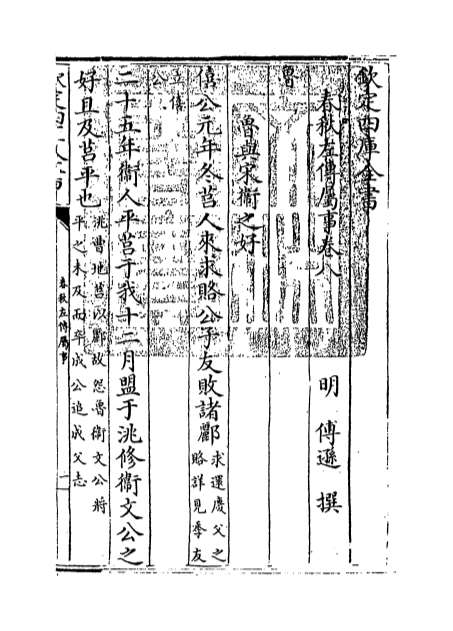 欽定四庫全書
春秋左傳屬事卷八
明 傅遜 撰
魯
魯與宋衛之好
僖公元年冬莒人來求賂公子友敗諸酈求還慶父之
賂詳見季友
立僖
公
二十五年衛人平莒于我十二月盟于洮修衛文公之
好且及莒平也洮曹地莒以酈故怨魯衛文公將
平之未及而卒成公追成父志
春秋左傳屬事
一